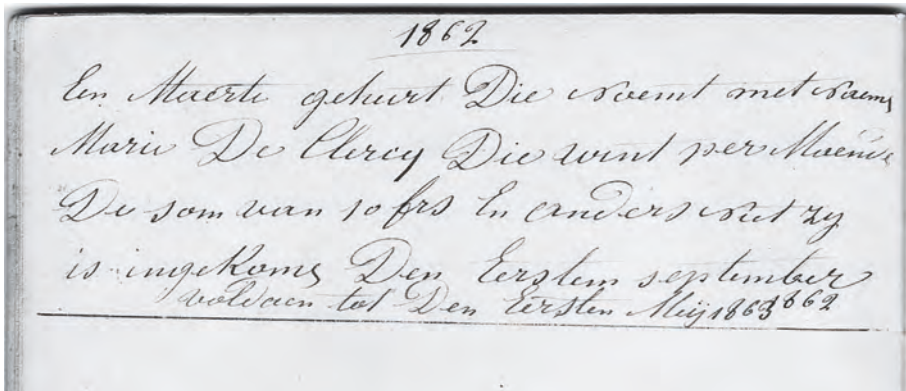 1862
En Maerte gehurt Die noemt met naeme
Marie De Clercq Die wint per Maend
De som van 10 frs En anders niet zy
is ingekome Den Eersten september
1862
voldaen tot Den Eersten Meij 1863